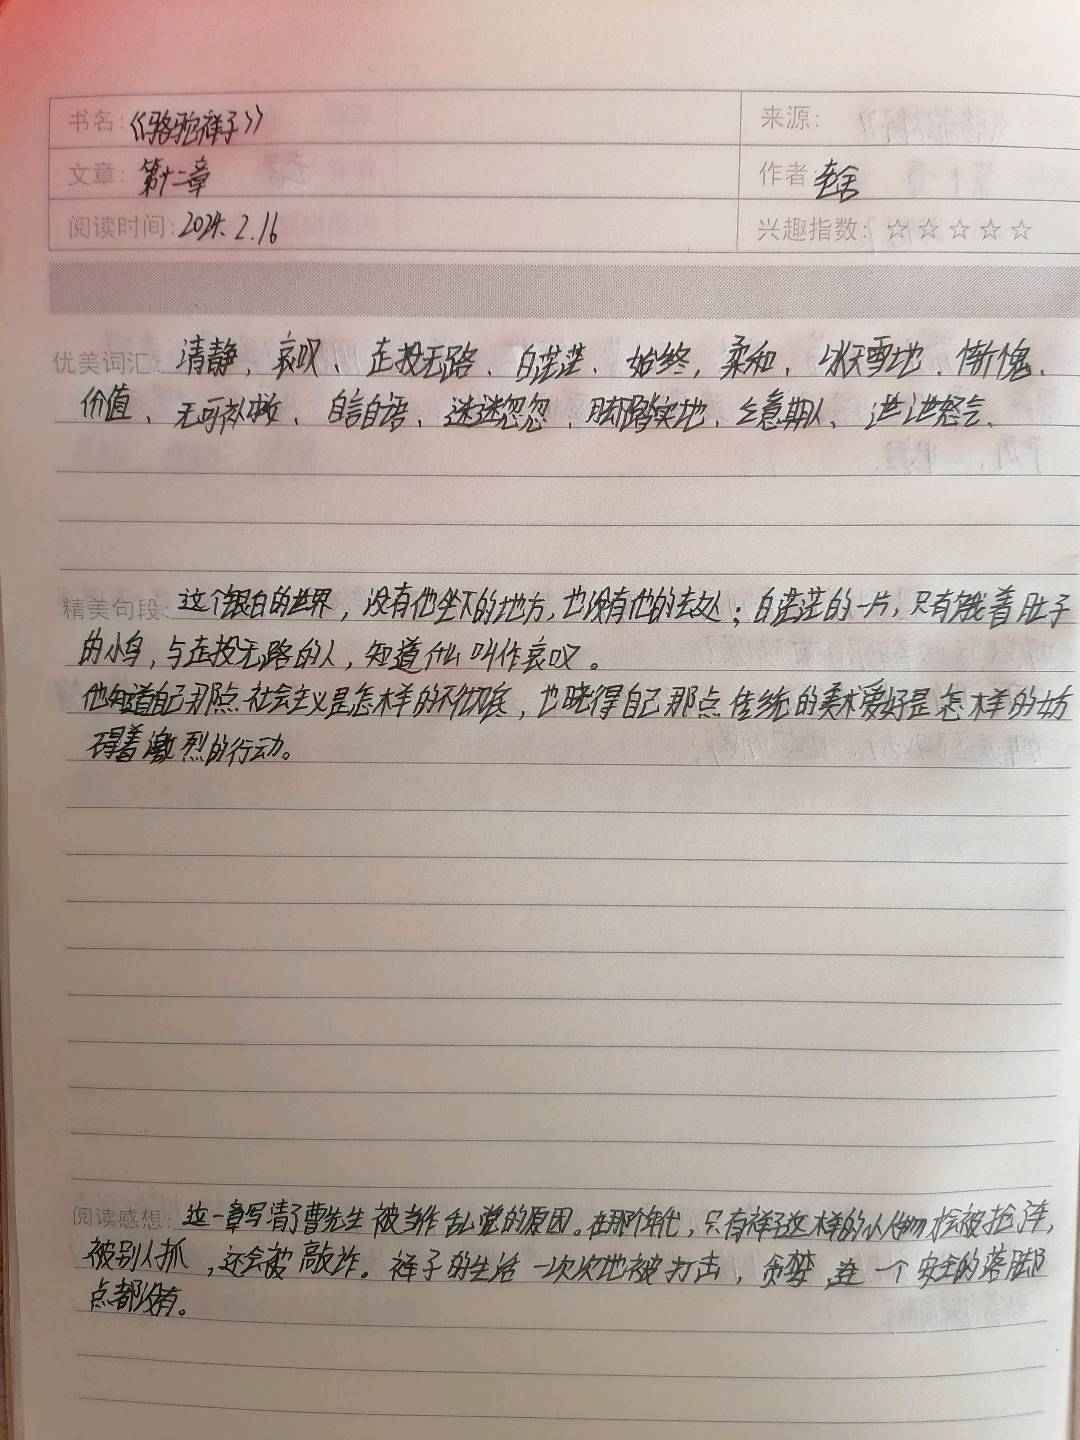 书名:《骆驼祥子》 来源:
文章: 第十二章 作者 老舍
阅读时间: 2024.2.16 兴趣指数: ☆☆☆☆☆
优美词汇: 清静、哀叹、走投无路、白茫茫、始终、柔和、冰天雪地、惭愧、
价值、无可救放、自言自语、迷迷忽忽、脚踏实地、生意期人、泄泄怒气、
精美句段: 这个银白的世界，没有他坐下的地方，也没有他的去处；白茫茫的一片，只有饿着肚子
的小鸟，与走投无路的人，知道什么叫作哀叹。
他知道自己那点社会主义是怎样的不彻底，也晓得自己那点传统的美术爱好是怎样的妨
碍着激烈的行动。
阅读感想: 这一章写清了曹先生被当作乱党的原因。在那个年代，只有祥子这样的小人物才会被抢车，
被别人抓，还会被敲诈。祥子的生活一次次地被打击，负梦，连一个安全的落脚
点都没有。